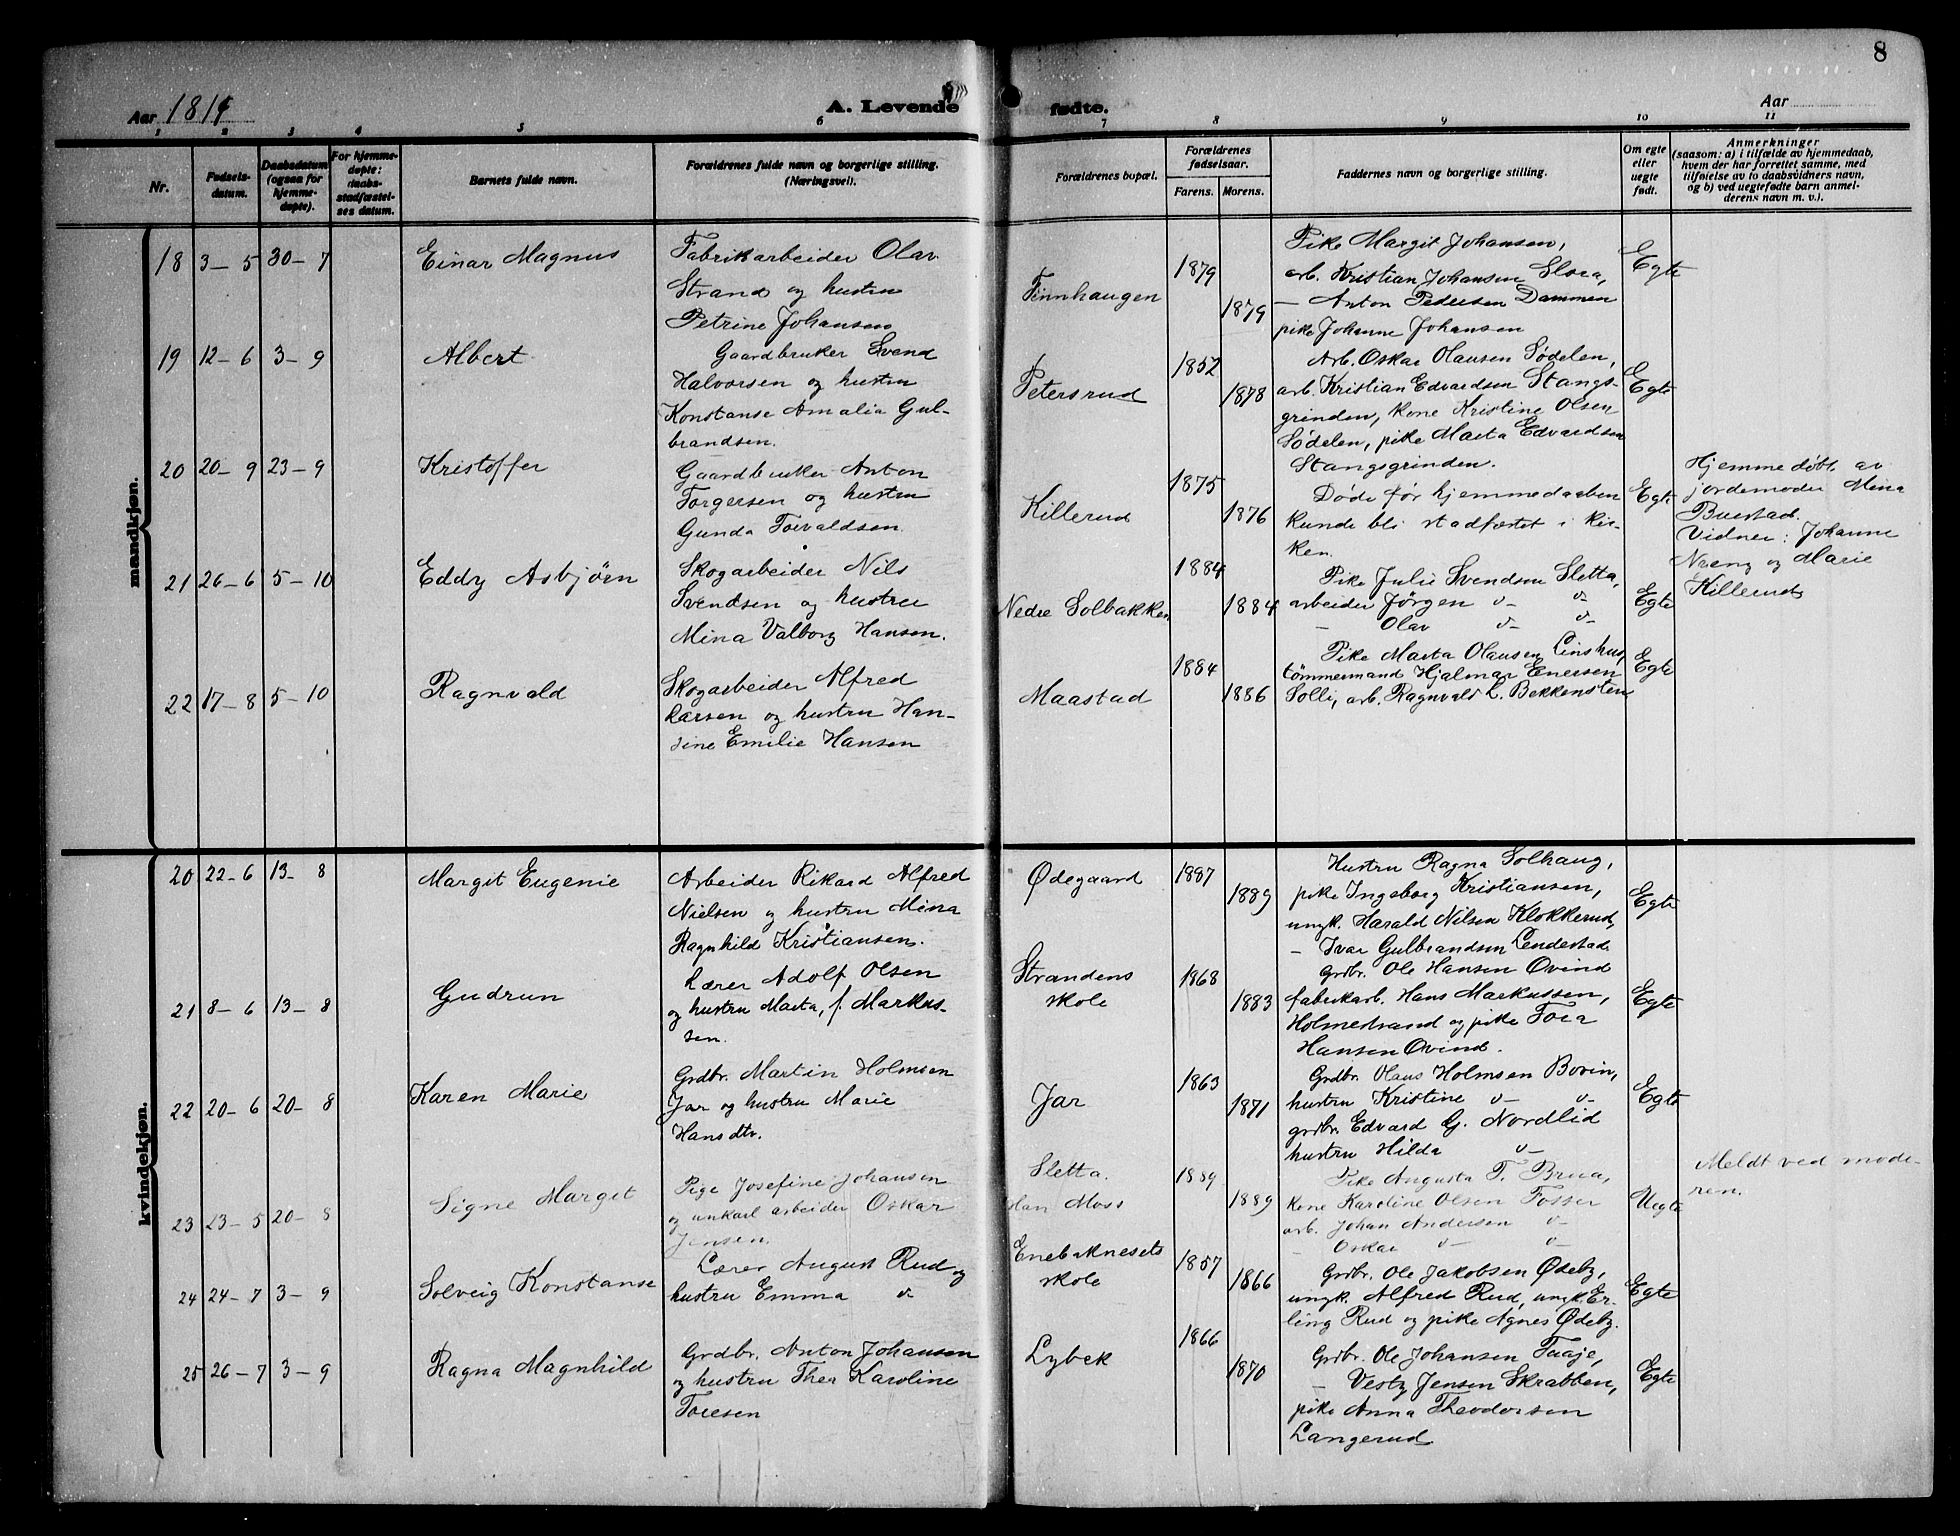 8
Aar 1814 A. Levende fødte. Aar
1 2 3 4 5 6 7 8 9 10 11
Nr.
Fødsels-
datum.
Daabsdatum
(ogsaa for
hjemme-
døpte).
For hjemme-
døpte:
daabs-
stadfæstel-
ses datum.
Barnets fulde navn.
Forældrenes fulde navn og borgerlige stilling.
(Næringsvei).
Forældrenes bopæl.
Forældrenes
fødselsaar.
Farens. Morens.
Faddernes navn og borgerlige stilling.
Om egte
eller
uegte
født.
Anmerkninger
(saasom: a) i tilfælde av hjemmedaab,
hvem der har forrettet samme, med
tilføielse av to daabsvidners navn,
og b) ved uegtefødte barn anmel-
derens navn m. v.).
mandkjøn.
18 3-5 30-7 Einar Magnus
Fabrikarbeider Olav
Strand og hustru
Petrine Johansen
Finnhaugen 1879 1879
Pike Margit Johansen,
arb. Kristian Johansen Slora,
— Anton Pedersen Dammen
pike Johanne Johansen
Egte
19 12-6 3-9 Albert
Gaardbruker Svend
Halvorsen og hustru
Konstanse Amalia Gul-
brandsen.
Petersrud 1852 1878
Arb. Oskar Olausen Sødelen,
arb. Kristian Edvardsen Stangs-
grinden, kone Kristine Olsen
Sødelen, pike Marta Edvardsen
Stangsgrinden.
Egte
20 20-9 23-9 Kristoffer
Gaardbruker Anton
Torgersen og hustru
Gunda Torvaldsen.
Killerud 1875 1876
Døde før hjemmedaaben
kunde bli stadfæstet i kir-
ken.
Egte
Hjemmedøbt av
jordemoder Mina
Buestad.
Vidner: Johanne
Nreng og Marie
Killerud
21 26-6 5-10 Eddy Asbjørn
Skogarbeider Nils
Svendsen og hustru
Mina Valborg Hansen.
Nedre Solbakken 1884 1884
Pike Julie Svendsen Sletta,
arbeider Jørgen -"- "
— Olav -"- "
Egte
22 17-8 5-10 Ragnvald
Skogarbeider Alfred
Larsen og hustru Han-
sine Emilie Hansen
Maastad 1884 1886
Pike Marta Olausen Linshus,
tømmermand Hjalmar Enersen
Solli, arb. Ragnvald L. Bekkensten
Egte
kvindekjøn.
20 22-6 13-8 Margit Eugenie
Arbeider Rikard Alfred
Nielsen og hustru Mina
Ragnhild Kristiansen.
Ødegaard 1887 1889
Hustru Ragna Solhaug,
pike Ingeborg Kristiansen,
ungk. Harald Nilsen Klokkerud,
— Ivar Gulbrandsen Lendestad
Egte
21 8-6 13-8 Gudrun
Lærer Adolf Olsen
og hustru Marta, f. Markus-
sen.
Strandens
skole
1868 1883
Grdbr. Ole Hansen Øvind
fabrikarb. Hans Markussen,
Holmestrand og pike Tora
Hansen Øvind.
Egte
22 20-6 20-8 Karen Marie
Grdbr. Martin Holmsen
Jar og hustru Marie
Hansdtr.
Jar 1863 1871
Grdbr. Olaus Holmsen Borin,
hustru Kristine -"- -"-
grdbr. Edvard G. Nordlid
hustru Hilda -"-
Egte
23 23-5 20-8 Signe Margit
Pige Josefine Johansen
og unkarl arbeider Oskar
Jensen.
Sletta.
Han Moss
1889 1889
Pike Augusta T. Brua,
kone Karoline Olsen Fosser
arb. Johan Andersen -"-
— Oskar -"- -"-
Uegte
Meldt ved mode-
ren.
24 24-7 3-9 Solveig Konstanse
Lærer August Rud og
hustru Emma -"-
Enebaknesets
skole
1857 1866
Grdbr. Ole Jakobsen Ødeby,
ungk. Alfred Rud, ungk. Er-
ling Rud og pike Agnes Ødeby.
Egte
25 26-7 3-9 Ragna Magnhild
Grdbr. Anton Johansen
og hustru Thea Karoline
Toresen
Lybek 1866 1870
Grdbr. Ole Johansen Taaje,
— Vesty Jensen Skrabben,
pike Anna Theodorsen
Langerud
Egte